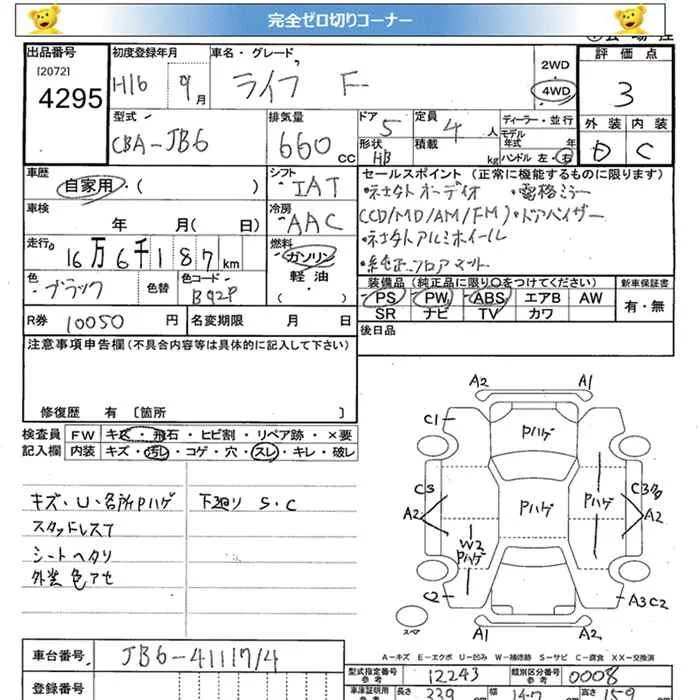 完全ゼロ切りコーナー
出品番号 初度登録年月 車名・グレード 2WD 評価点
[2072]
4295 H16 9月 ライフ F 4WD 3
外装 内装
D C
型式 排気量 ドア 定員 ディーラー・並行
CBA-JB6 660cc 5 4人 モデル年式 年
形状 HB 積載 kg ハンドル 左・右
車歴 シフト セールスポイント (正常に機能するものに限ります)
自家用・( ) IAT
車検 冷房 AAC (CD/MD/AM/FM)・ドアバイザー
年 月( 日)
走行 燃料
16万6千187km ガソリン
軽油
・( )
・純正フロアマット
色 色替 色コード
・ブラック B92P
装備品 (純正品に限り○をつけてください) 新車保証書
PS PW ABS エアB AW 有・無
SR ナビ TV カワ
R券 10050 円 名変期限 月 日 後日品
注意事項申告欄(不具合内容等は具体的に記入して下さい)
修復歴 有 [箇所 ]
検査員 FW キズ・飛石・ヒビ割・リペア跡・×要
記入欄 内装 キズ・汚レ・コゲ・穴・スレ・キレ・破レ
キズ・U・各所Pハゲ 下廻り S・C
スタッドレスT
シートヘタリ
外装色アセ
A2 A1
C1 Pハゲ
C3 A2 Pハゲ Pハゲ A2
W2 Pハゲ
C2 A3C2
スペア A1 A2
A－キズ E－エクボ U－凹み W－補修跡 S－サビ C－腐食 XX－交換済
車台番号 JB6-4111714
型式指定番号 参考 12243 類別区分番号 参考 0008
登録番号
車庫証明用 参考 長さ 339 幅 高さ